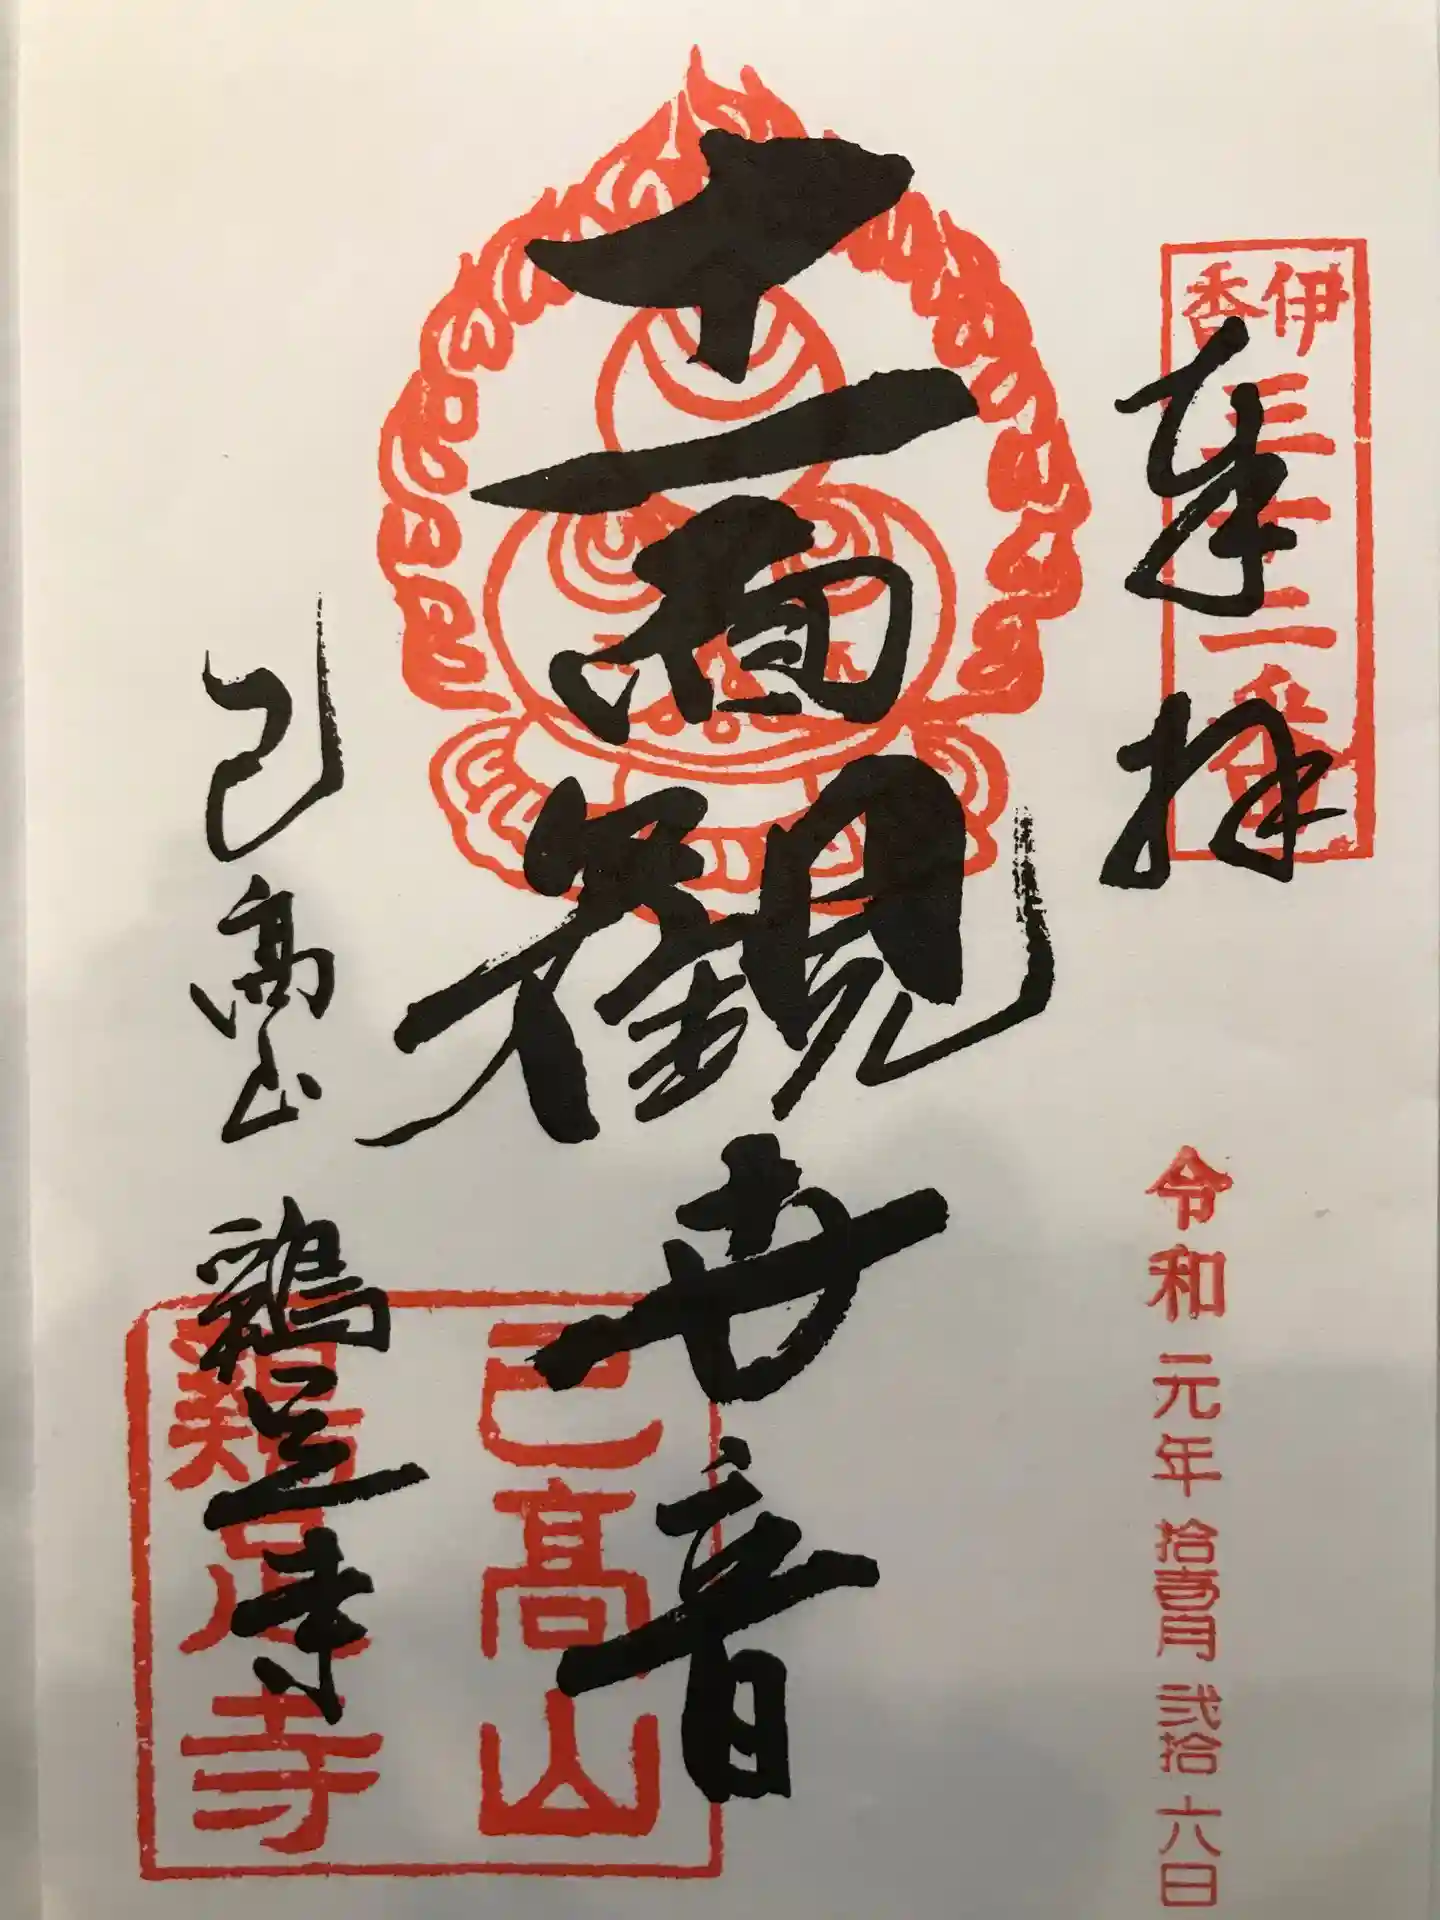 伊香三十二番
奉拝
令和元年拾壹月弐拾六日
十一面観世音
己高山
鶏足寺
己高山
鶏足寺